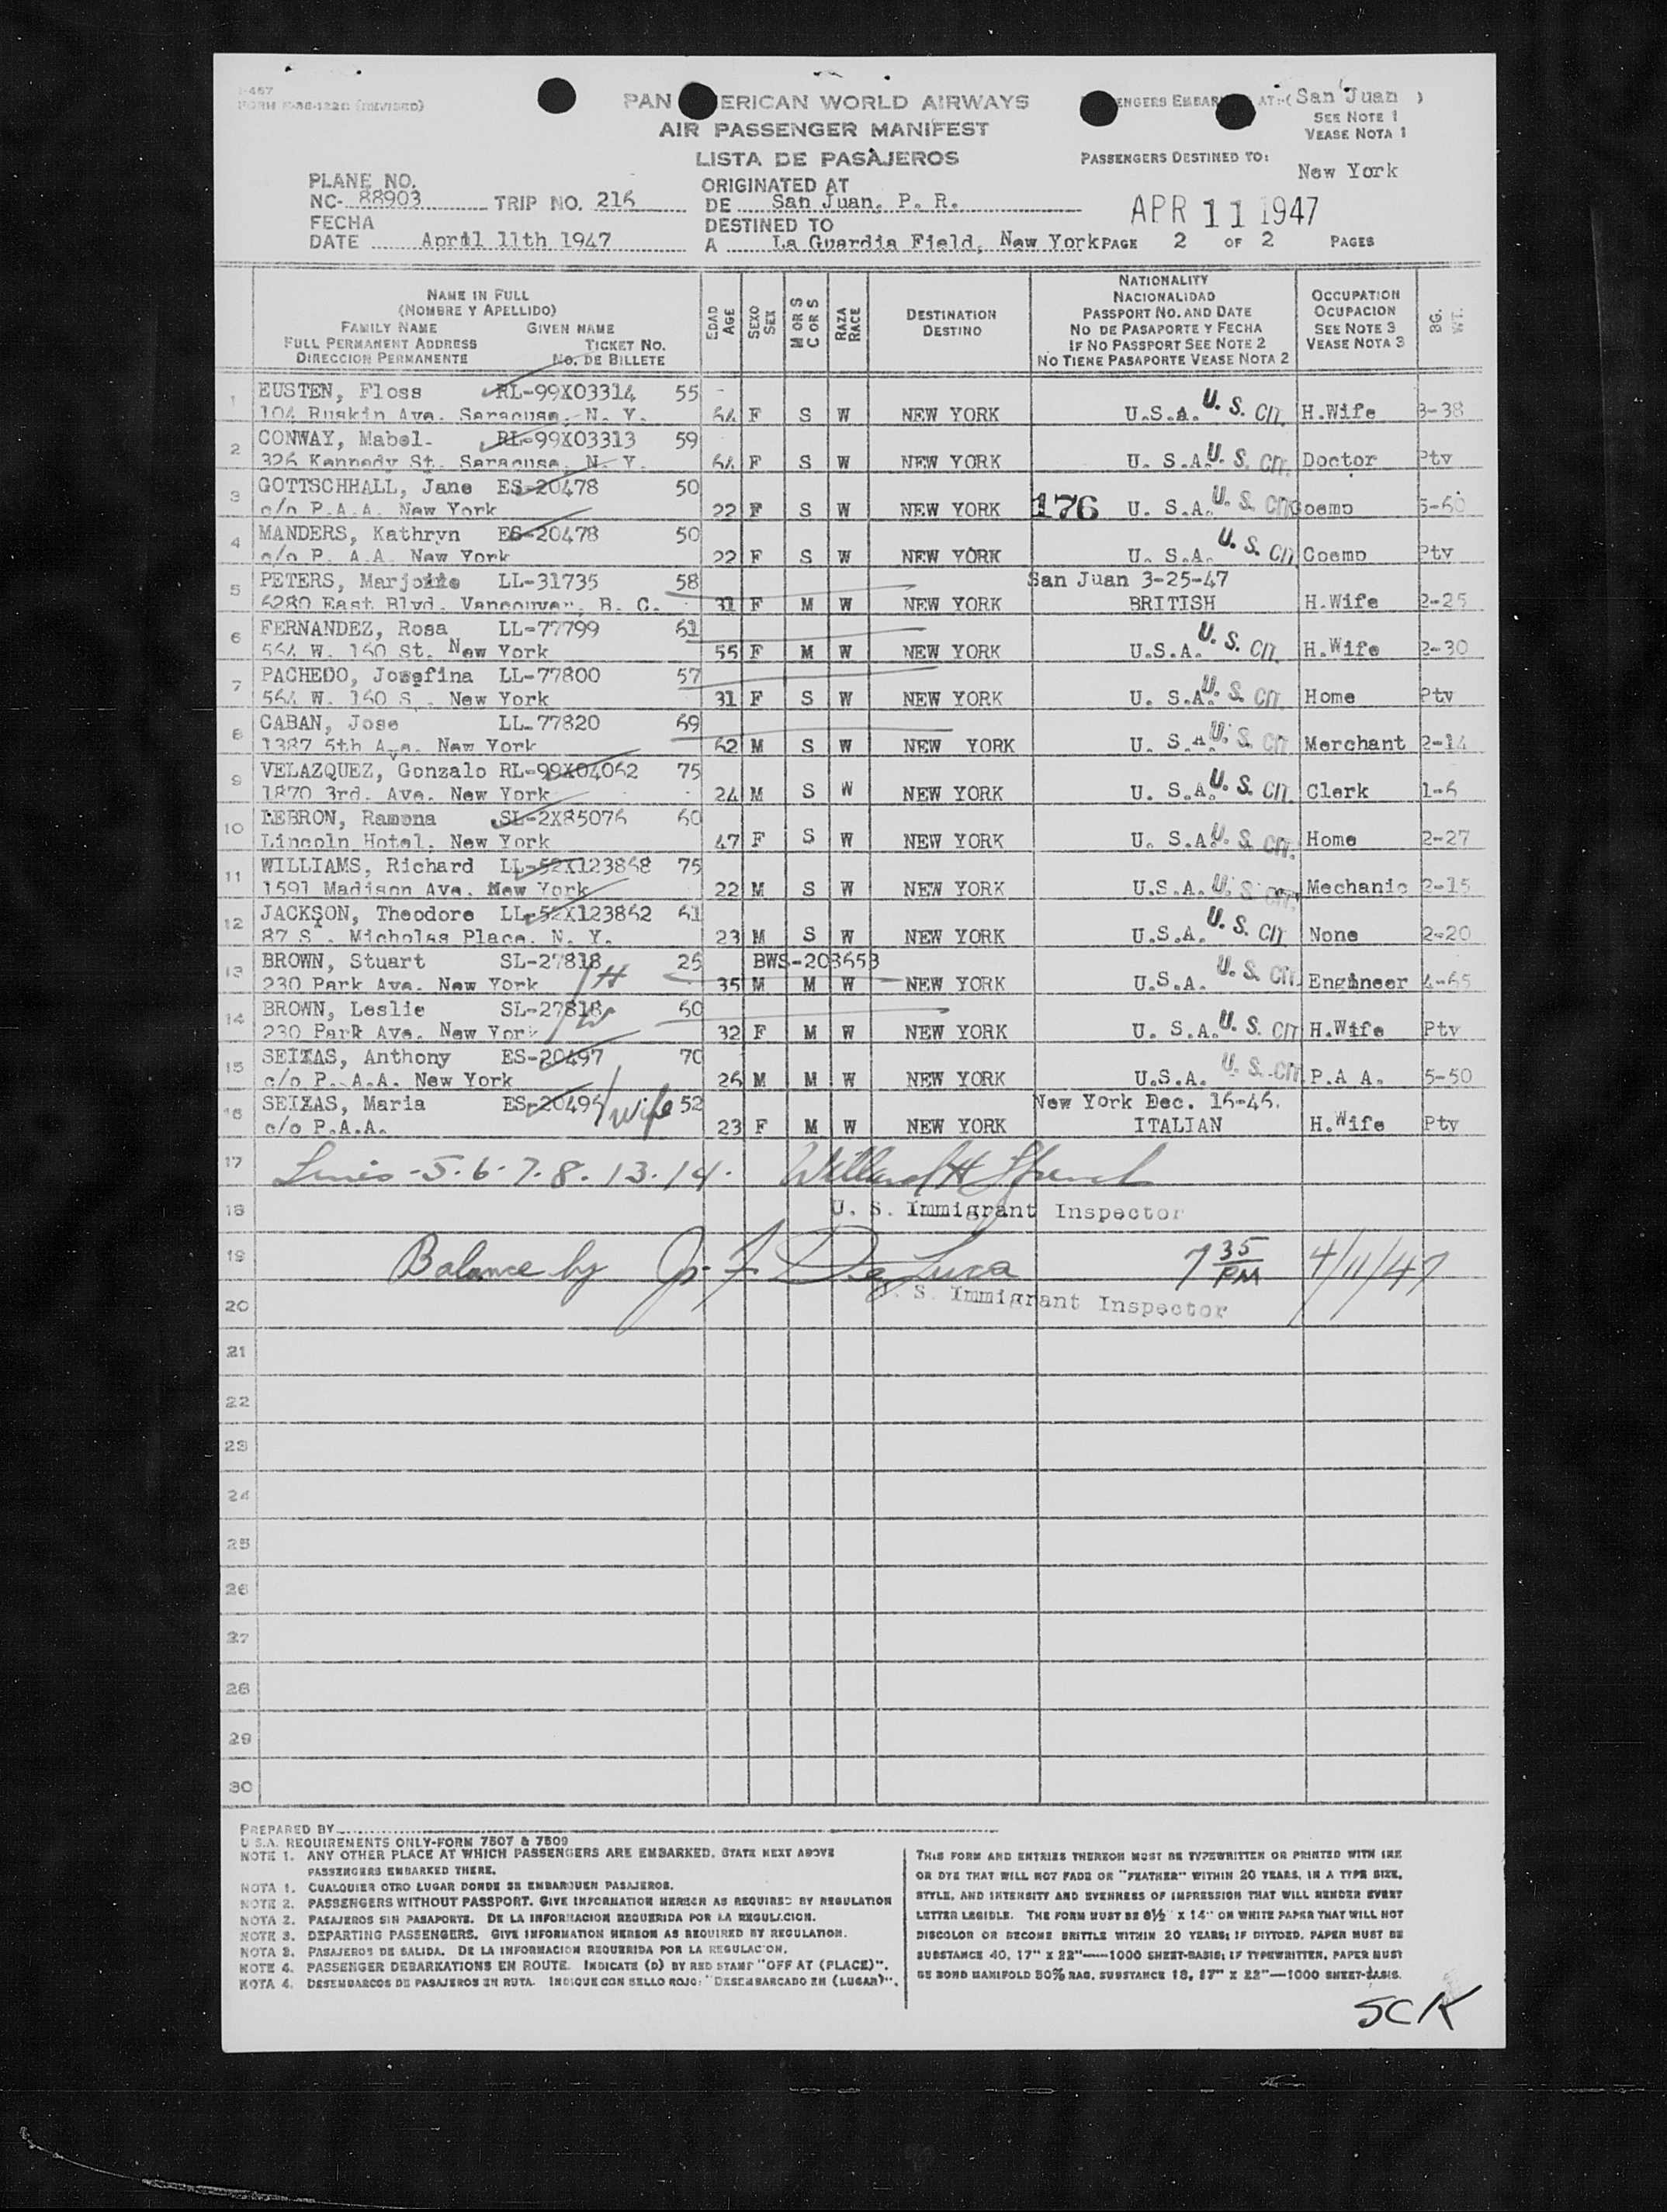 I-467
FORM F-36-122C (REVISED)
PAN AMERICAN WORLD AIRWAYS
AIR PASSENGER MANIFEST
LISTA DE PASAJEROS
PASSENGERS EMBARKED AT:- ( San Juan )
SEE NOTE 1
VEASE NOTA 1
PASSENGERS DESTINED TO:
New York
PLANE NO.
NC- 88903 TRIP NO. 216
FECHA
DATE April 11th 1947
ORIGINATED AT
DE San Juan, P. R.
DESTINED TO
A La Guardia Field, New York
APR 11 1947
PAGE 2 OF 2 PAGES
NAME IN FULL
(NOMBRE Y APELLIDO)
FAMILY NAME GIVEN NAME
FULL PERMANENT ADDRESS TICKET NO.
DIRECCION PERMANENTE NO. DE BILLETE
EDAD AGE
SEXO SEX
M OR S C OR S
RAZA RACE
DESTINATION
DESTINO
NATIONALITY
NACIONALIDAD
PASSPORT NO. AND DATE
NO DE PASAPORTE Y FECHA
IF NO PASSPORT SEE NOTE 2
NO TIENE PASAPORTE VEASE NOTA 2
OCCUPATION
OCUPACION
SEE NOTE 3
VEASE NOTA 3
BG. WT.
1 EUSTEN, Floss RL-99X03314 55
104 Ruskin Ave. Saracuse, N. Y. 64 F S W NEW YORK U.S.A. U. S. CIT. H.Wife 3-38
2 CONWAY, Mabel- RL-99X03313 59
326 Kennedy St. Saracuse, N. Y. 64 F S W NEW YORK U. S.A. U. S. CIT. Doctor Ptv
3 GOTTSCHHALL, Jane ES-20478 50
c/o P.A.A. New York 22 F S W NEW YORK 176 U. S.A. U. S. CIT. Coemp 5-60
4 MANDERS, Kathryn ES-20478 50
c/o P. A.A. New York 22 F S W NEW YORK U. S.A. U. S. CIT Coemp Ptv
5 PETERS, Marjoiie LL-31735 58 San Juan 3-25-47
6280 East Blvd. Vancouver, B. C. 31 F M W NEW YORK BRITISH H.Wife 2-25
6 FERNANDEZ, Rosa LL-77799 61
564 W. 160 St. New York 55 F M W NEW YORK U.S.A. U. S. CIT. H.Wife 2-30
7 PACHEDO, Josefina LL-77800 57
564 W. 160 S . New York 31 F S W NEW YORK U. S.A. U. S. CIT. Home Ptv
8 CABAN, Jose LL-77820 69
1387 5th Ave. New York 62 M S W NEW YORK U. S.A. U. S. CIT. Merchant 2-14
9 VELAZQUEZ, Gonzalo RL-99X04062 75
1870 3rd. Ave. New York 24 M S W NEW YORK U. S.A. U. S. CIT. Clerk 1-6
10 LEBRON, Ramona SL-2X85076 60
Lincoln Hotel, New York 47 F S W NEW YORK U. S.A. U. S. CIT. Home 2-27
11 WILLIAMS, Richard LL-52X123868 75
1591 Madison Ave. New York 22 M S W NEW YORK U.S.A. U. S. CIT. Mechanic 2-15
12 JACKSON, Theodore LL-52X123862 61
87 S . Micholas Place, N. Y. 23 M S W NEW YORK U.S.A. U. S. CIT None 2-20
13 BROWN, Stuart SL-27818 26 BWS-203653
230 Park Ave. New York H 35 M M W NEW YORK U.S.A. U. S. CIT. Engineer 4-65
14 BROWN, Leslie SL-27818 60
230 Park Ave. New York W 32 F M W NEW YORK U. S.A. U. S. CIT H.Wife Ptv
15 SEIXAS, Anthony ES-20497 70
c/o P. A.A. New York 26 M M W NEW YORK U.S.A. U. S. CIT. P.A A. 5-50
16 SEIXAS, Maria ES-20496 wife 52 New York Dec. 16-46.
c/o P.A.A. 23 F M W NEW YORK ITALIAN H.Wife Pty
17 Lines - 5. 6. 7. 8. 13. 14.
18 U. S. Immigrant Inspector
19 Balance by De Luca 7 35 PM 4/11/47
20 U. S. Immigrant Inspector
21
22
23
24
25
26
27
28
29
30
PREPARED BY
U.S.A. REQUIREMENTS ONLY-FORM 7507 & 7509
NOTE 1. ANY OTHER PLACE AT WHICH PASSENGERS ARE EMBARKED, STATE NEXT ABOVE
PASSENGERS EMBARKED THERE.
NOTA 1. CUALQUIER OTRO LUGAR DONDE SE EMBARQUEN PASAJEROS.
NOTE 2. PASSENGERS WITHOUT PASSPORT. GIVE INFORMATION HEREON AS REQUIRED BY REGULATION
NOTA 2. PASAJEROS SIN PASAPORTE. DE LA INFORMACION REQUERIDA POR LA REGULACION.
NOTE 3. DEPARTING PASSENGERS. GIVE INFORMATION HEREON AS REQUIRED BY REGULATION.
NOTA 3. PASAJEROS DE SALIDA. DE LA INFORMACION REQUERIDA POR LA REGULACION.
NOTE 4. PASSENGER DEBARKATIONS EN ROUTE. INDICATE (D) BY RED STAMP "OFF AT (PLACE)".
NOTA 4. DESEMBARCOS DE PASAJEROS EN RUTA. INDIQUE CON SELLO ROJO: "DESEMBARCADO EN (LUGAR)".
THIS FORM AND ENTRIES THEREON MUST BE TYPEWRITTEN OR PRINTED WITH INK
OR DYE THAT WILL NOT FADE OR "FEATHER" WITHIN 20 YEARS, IN A TYPE SIZE,
STYLE, AND INTENSITY AND EVENNESS OF IMPRESSION THAT WILL RENDER EVERY
LETTER LEGIBLE. THE FORM MUST BE 8½" X 14" ON WHITE PAPER THAT WILL NOT
DISCOLOR OR BECOME BRITTLE WITHIN 20 YEARS; IF DITTOED, PAPER MUST BE
SUBSTANCE 40, 17" X 22"—1000 SHEET-BASIS; IF TYPEWRITTEN, PAPER MUST
BE BOND MANIFOLD 50% RAG, SUBSTANCE 18, 17" X 22"—1000 SHEET-BASIS.
SCK